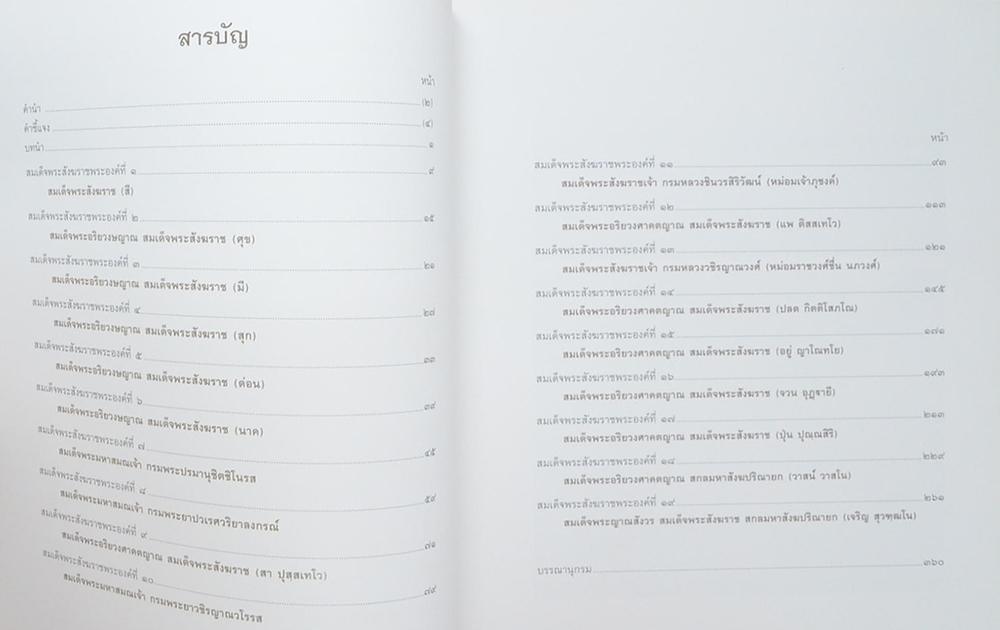 สารบัญ
หน้า
คำนำ (๒)
คำชี้แจง (๔)
บทนำ ๑
สมเด็จพระสังฆราชพระองค์ที่ ๑ ๙
สมเด็จพระสังฆราช (สี)
สมเด็จพระสังฆราชพระองค์ที่ ๒ ๑๕
สมเด็จพระอริยวงษญาณ สมเด็จพระสังฆราช (ศุข)
สมเด็จพระสังฆราชพระองค์ที่ ๓ ๒๑
สมเด็จพระอริยวงษญาณ สมเด็จพระสังฆราช (มี)
สมเด็จพระสังฆราชพระองค์ที่ ๔ ๒๗
สมเด็จพระอริยวงษญาณ สมเด็จพระสังฆราช (สุก)
สมเด็จพระสังฆราชพระองค์ที่ ๕ ๓๓
สมเด็จพระอริยวงษญาณ สมเด็จพระสังฆราช (ด่อน)
สมเด็จพระสังฆราชพระองค์ที่ ๖ ๓๙
สมเด็จพระอริยวงษญาณ สมเด็จพระสังฆราช (นาค)
สมเด็จพระสังฆราชพระองค์ที่ ๗ ๔๕
สมเด็จพระมหาสมณเจ้า กรมพระปรมานุชิตชิโนรส
สมเด็จพระสังฆราชพระองค์ที่ ๘ ๕๙
สมเด็จพระมหาสมณเจ้า กรมพระยาปวเรศวริยาลงกรณ์
สมเด็จพระสังฆราชพระองค์ที่ ๙ ๗๑
สมเด็จพระอริยวงศาคตญาณ สมเด็จพระสังฆราช (สา ปุสฺสเทโว)
สมเด็จพระสังฆราชพระองค์ที่ ๑๐ ๗๙
สมเด็จพระมหาสมณเจ้า กรมพระยาวชิรญาณวโรรส
หน้า
สมเด็จพระสังฆราชพระองค์ที่ ๑๑ ๙๓
สมเด็จพระสังฆราชเจ้า กรมหลวงชินวรสิริวัฒน์ (หม่อมเจ้าภุชงค์)
สมเด็จพระสังฆราชพระองค์ที่ ๑๒ ๑๑๓
สมเด็จพระอริยวงศาคตญาณ สมเด็จพระสังฆราช (แพ ติสฺสเทโว)
สมเด็จพระสังฆราชพระองค์ที่ ๑๓ ๑๒๑
สมเด็จพระสังฆราชเจ้า กรมหลวงวชิรญาณวงศ์ (หม่อมราชวงศ์ชื่น นภวงศ์)
สมเด็จพระสังฆราชพระองค์ที่ ๑๔ ๑๔๕
สมเด็จพระอริยวงศาคตญาณ สมเด็จพระสังฆราช (ปลด กิตติโสภโณ)
สมเด็จพระสังฆราชพระองค์ที่ ๑๕ ๑๗๑
สมเด็จพระอริยวงศาคตญาณ สมเด็จพระสังฆราช (อยู่ ญาโณทโย)
สมเด็จพระสังฆราชพระองค์ที่ ๑๖ ๑๙๓
สมเด็จพระอริยวงศาคตญาณ สมเด็จพระสังฆราช (จวน อุฏฺฐายี)
สมเด็จพระสังฆราชพระองค์ที่ ๑๗ ๒๑๓
สมเด็จพระอริยวงศาคตญาณ สมเด็จพระสังฆราช (ปุ่น ปุณฺณสิริ)
สมเด็จพระสังฆราชพระองค์ที่ ๑๘ ๒๒๙
สมเด็จพระอริยวงศาคตญาณ สกลมหาสังฆปริณายก (วาสน์ วาสโน)
สมเด็จพระสังฆราชพระองค์ที่ ๑๙ ๒๖๑
สมเด็จพระญาณสังวร สมเด็จพระสังฆราช สกลมหาสังฆปริณายก (เจริญ สุวฑฺฒโน)
บรรณานุกรม ๓๖๐